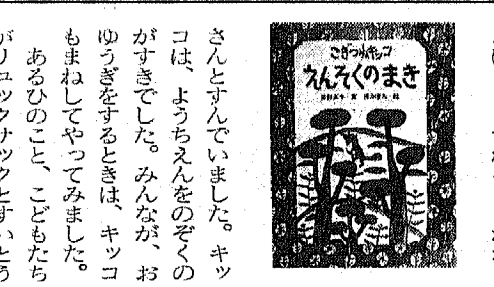 こぎつねキッコ
えんそくのまき
さんとすんでいました。キッ
コは、ようちえんをのぞくの
がすきでした。みんなが、お
ゆうぎをするときは、キッコ
もまねしてやってみました。
あるひのこと、こどもたち
がリュックサックとすいとう